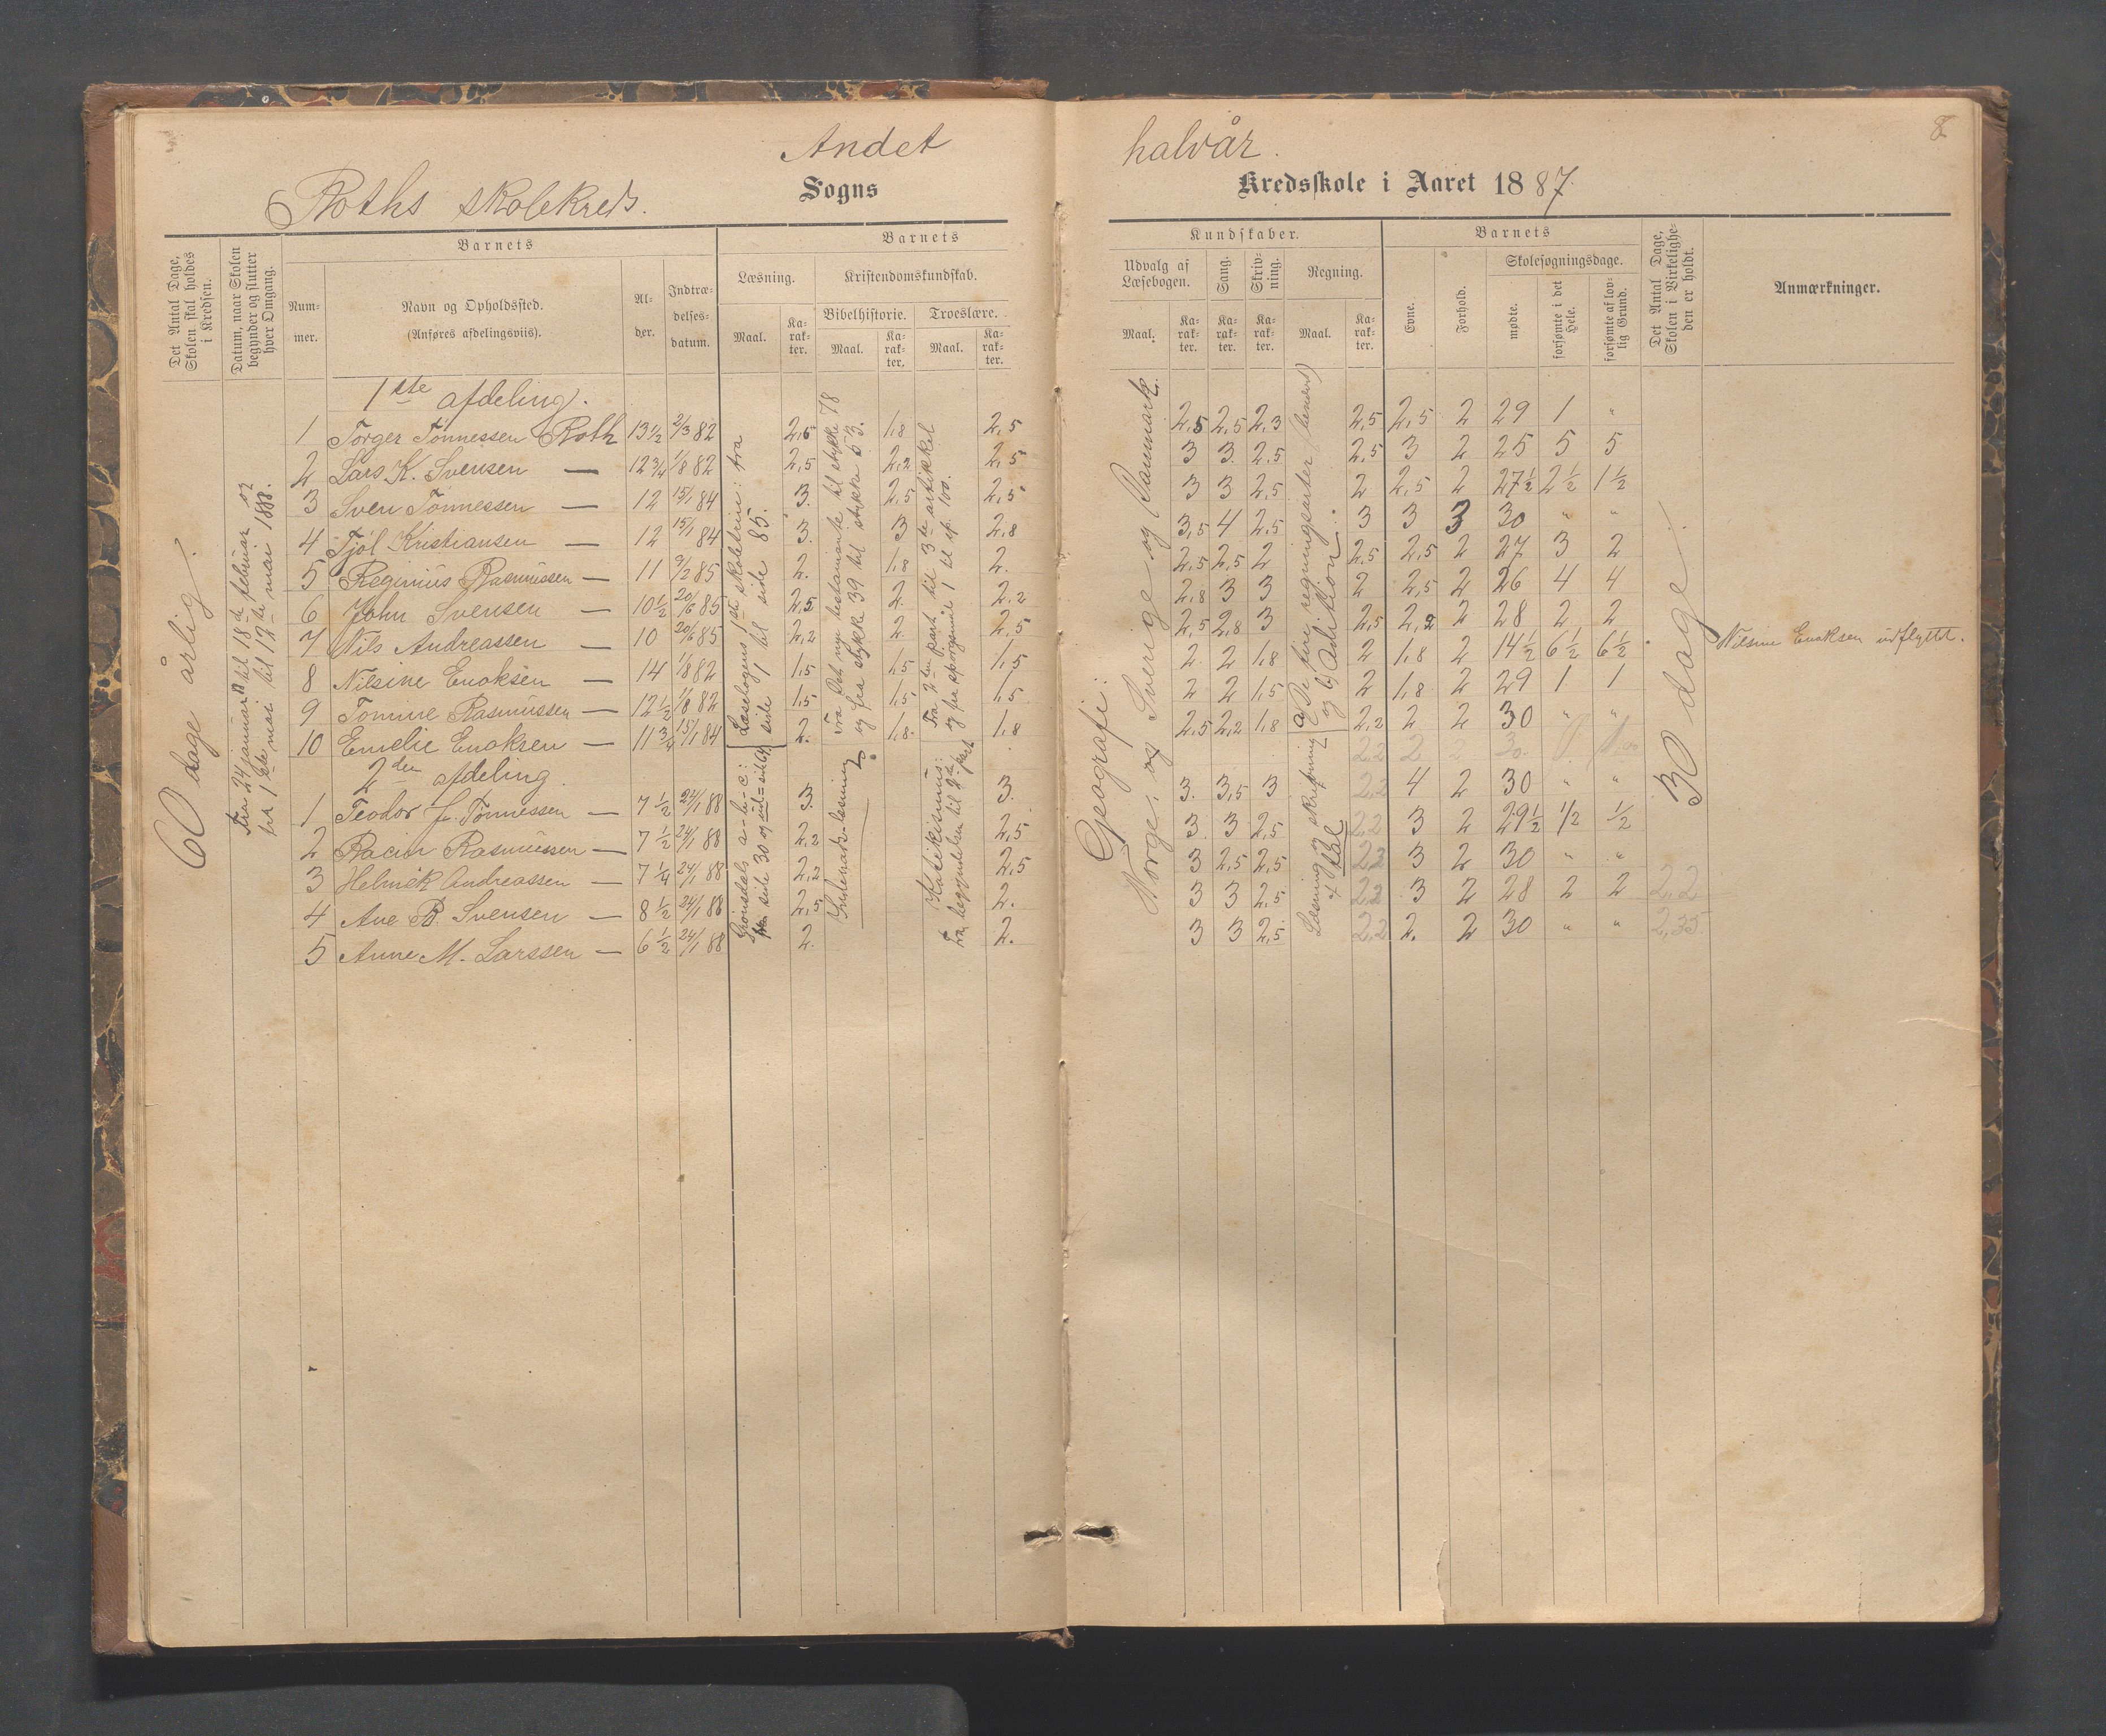 Andet halvår.
8
Roths skolekreds. Sogns Kredsskole i Aaret 1887.
Det Antal Dage, Skolen skal holdes i Kredsen.
Datum, naar Skolen begynder og slutter hver Omgang.
Barnets
Nummer.
Navn og Opholdssted.
(Anføres afdelingsviis).
Alder.
Indtrædelsesdatum.
Barnets
Læsning.
Maal.
Karakter.
Kristendomskundskab.
Bibelhistorie.
Maal.
Karakter.
Troeslære.
Maal.
Karakter.
Kundskaber.
Udvalg af Læsebogen.
Maal.
Karakter.
Sang.
Karakter.
Skrivning.
Karakter.
Regning.
Maal.
Karakter.
Barnets
Evne.
Forhold.
Skolesøgningsdage.
mødte.
forsømte i det Hele.
forsømte af lovlig Grund.
Det Antal Dage, Skolen i Virkeligheden er holdt.
Anmærkninger.
60 dage årlig.
Fra 24 januar til 18de februar og
fra 1ste mai til 12te mai 1888.
1ste afdeling.
1 Torger Tønnessen Roth 13½ 2/3 82 2,5 1,8 2,5 2,5 2,5 2,3 2,5 2,5 2 29 1 "
2 Lars K. Svensen — 12¾ 1/8 82 2,5 2,2 2,5 3 3 2,5 2,5 3 2 25 5 5
3 Sven Tønnessen — 12 15/1 84 3. 2,5 2,5 3 3 2,5 2 2,5 2 27½ 2½ 1½
4 Tjøl Kristiansen — 12 15/1 84 3. 3 2,8 3,5 4 2,5 3 3 3 30 " "
5 Reginius Rasmussen — 11 9/2 85 2. 1,8 2. 2,5 2,5 2 2,5 2,5 2 27 3 2
6 John Svensen — 10½ 20/6 85 2,5 2. 2,2 2,8 3 3 2 2,5 2 26 4 4
7 Nils Andreassen — 10 20/6 85 2,2 2 2,5 2,5 2,8 3 2,5 2,2 2 28 2 2
8 Nilsine Enoksen — 14 1/8 82 1,5 1,5 1,5 2 2 1,8 2 1,8 2 14½ 6½ 6½ Nilsine Enoksen udflyttet.
9 Tomine Rasmussen — 12½ 1/8 82 1,5 1,5 1,5 2 2 1,5 2 1,8 2 29 1 1
10 Emelie Enoksen — 11¾ 15/1 84 2. 1,8 1,8 2,5 2,2 1,8 2,2 2 2 30 " "
2den afdeling.
1 Teodor J. Tønnessen — 7½ 24/1 88 3. 3. 3. 3,5 3 2,2 4 2 30 " "
2 Racin Rasmussen — 7½ 24/1 88 2,2 2,5 3. 3 2,5 2,2 3 2 29½ ½ ½
3 Helmik Andreassen — 7¼ 24/1 88 2,2 2,5 3 2,5 2,5 2,2 3 2 30 " "
4 Ane B. Svensen — 8½ 24/1 88 2,5 2. 3 3 2,5 2,2 3 2 28 2 2 2,2
5 Anne M. Larssen — 6½ 24/1 88 2. 2. 3 3 2,5 2,2 2. 2 30 " " 2,35
Læsebogens 1ste skoletrin: fra
side 1 til side 85.
Grønsdals a-b-c:
side 30
Fra Det nye testamente til stykke 78
og fra stykke 39 til stykke 53.
Indenads-læsning
Fra 2den part til 3de artikkel
og fra spørgsmål 1 til sp. 100.
Katekismus:
Fra begyndelsen til 2den part
Geografi:
Norge, og Sverige og Danmark.
a) De fire regningsarter (benævnt)
og b) Adition.
Læsning og skrivning
4 tal
30 dage.